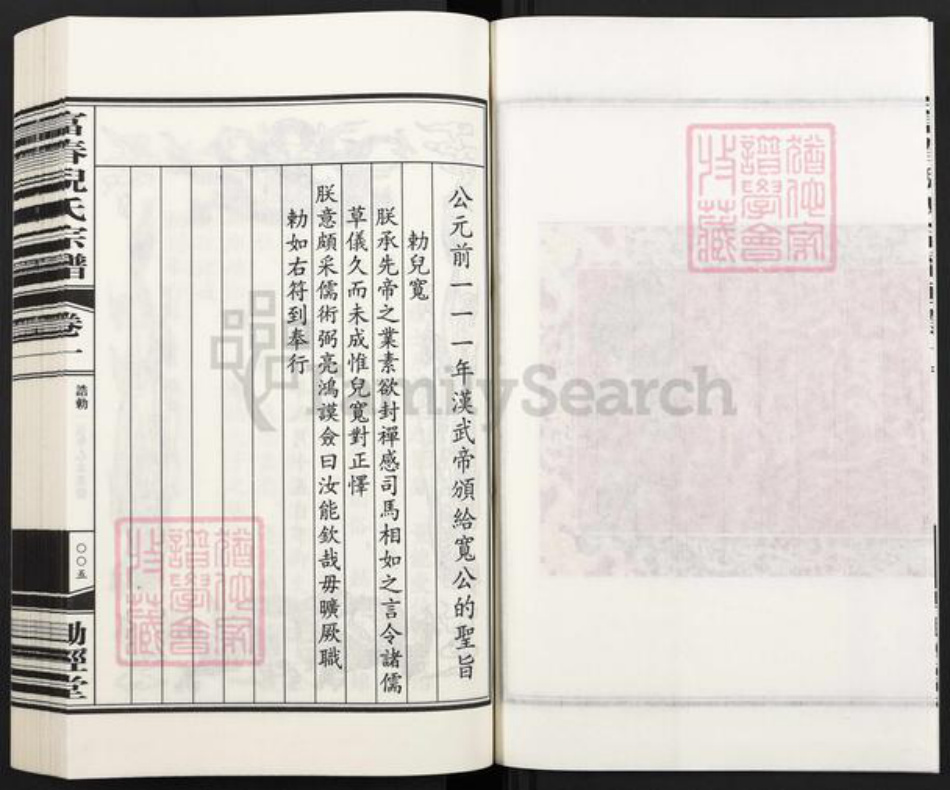 公元前一一一年漢武帝頒給寬公的聖旨
勅兒寬
朕承先帝之業素欲封禪感司馬相如之言令諸儒
草儀久而未成惟兒寬對正懌
朕意頗采儒術弼亮鴻謨僉曰汝能欽哉毋曠厥職
勅如右符到奉行
富春兒氏宗譜
卷一
誥勅
〇〇五
勤經堂
猶他家
譜學會
收藏
猶他家
譜學會
收藏
FamilySearch